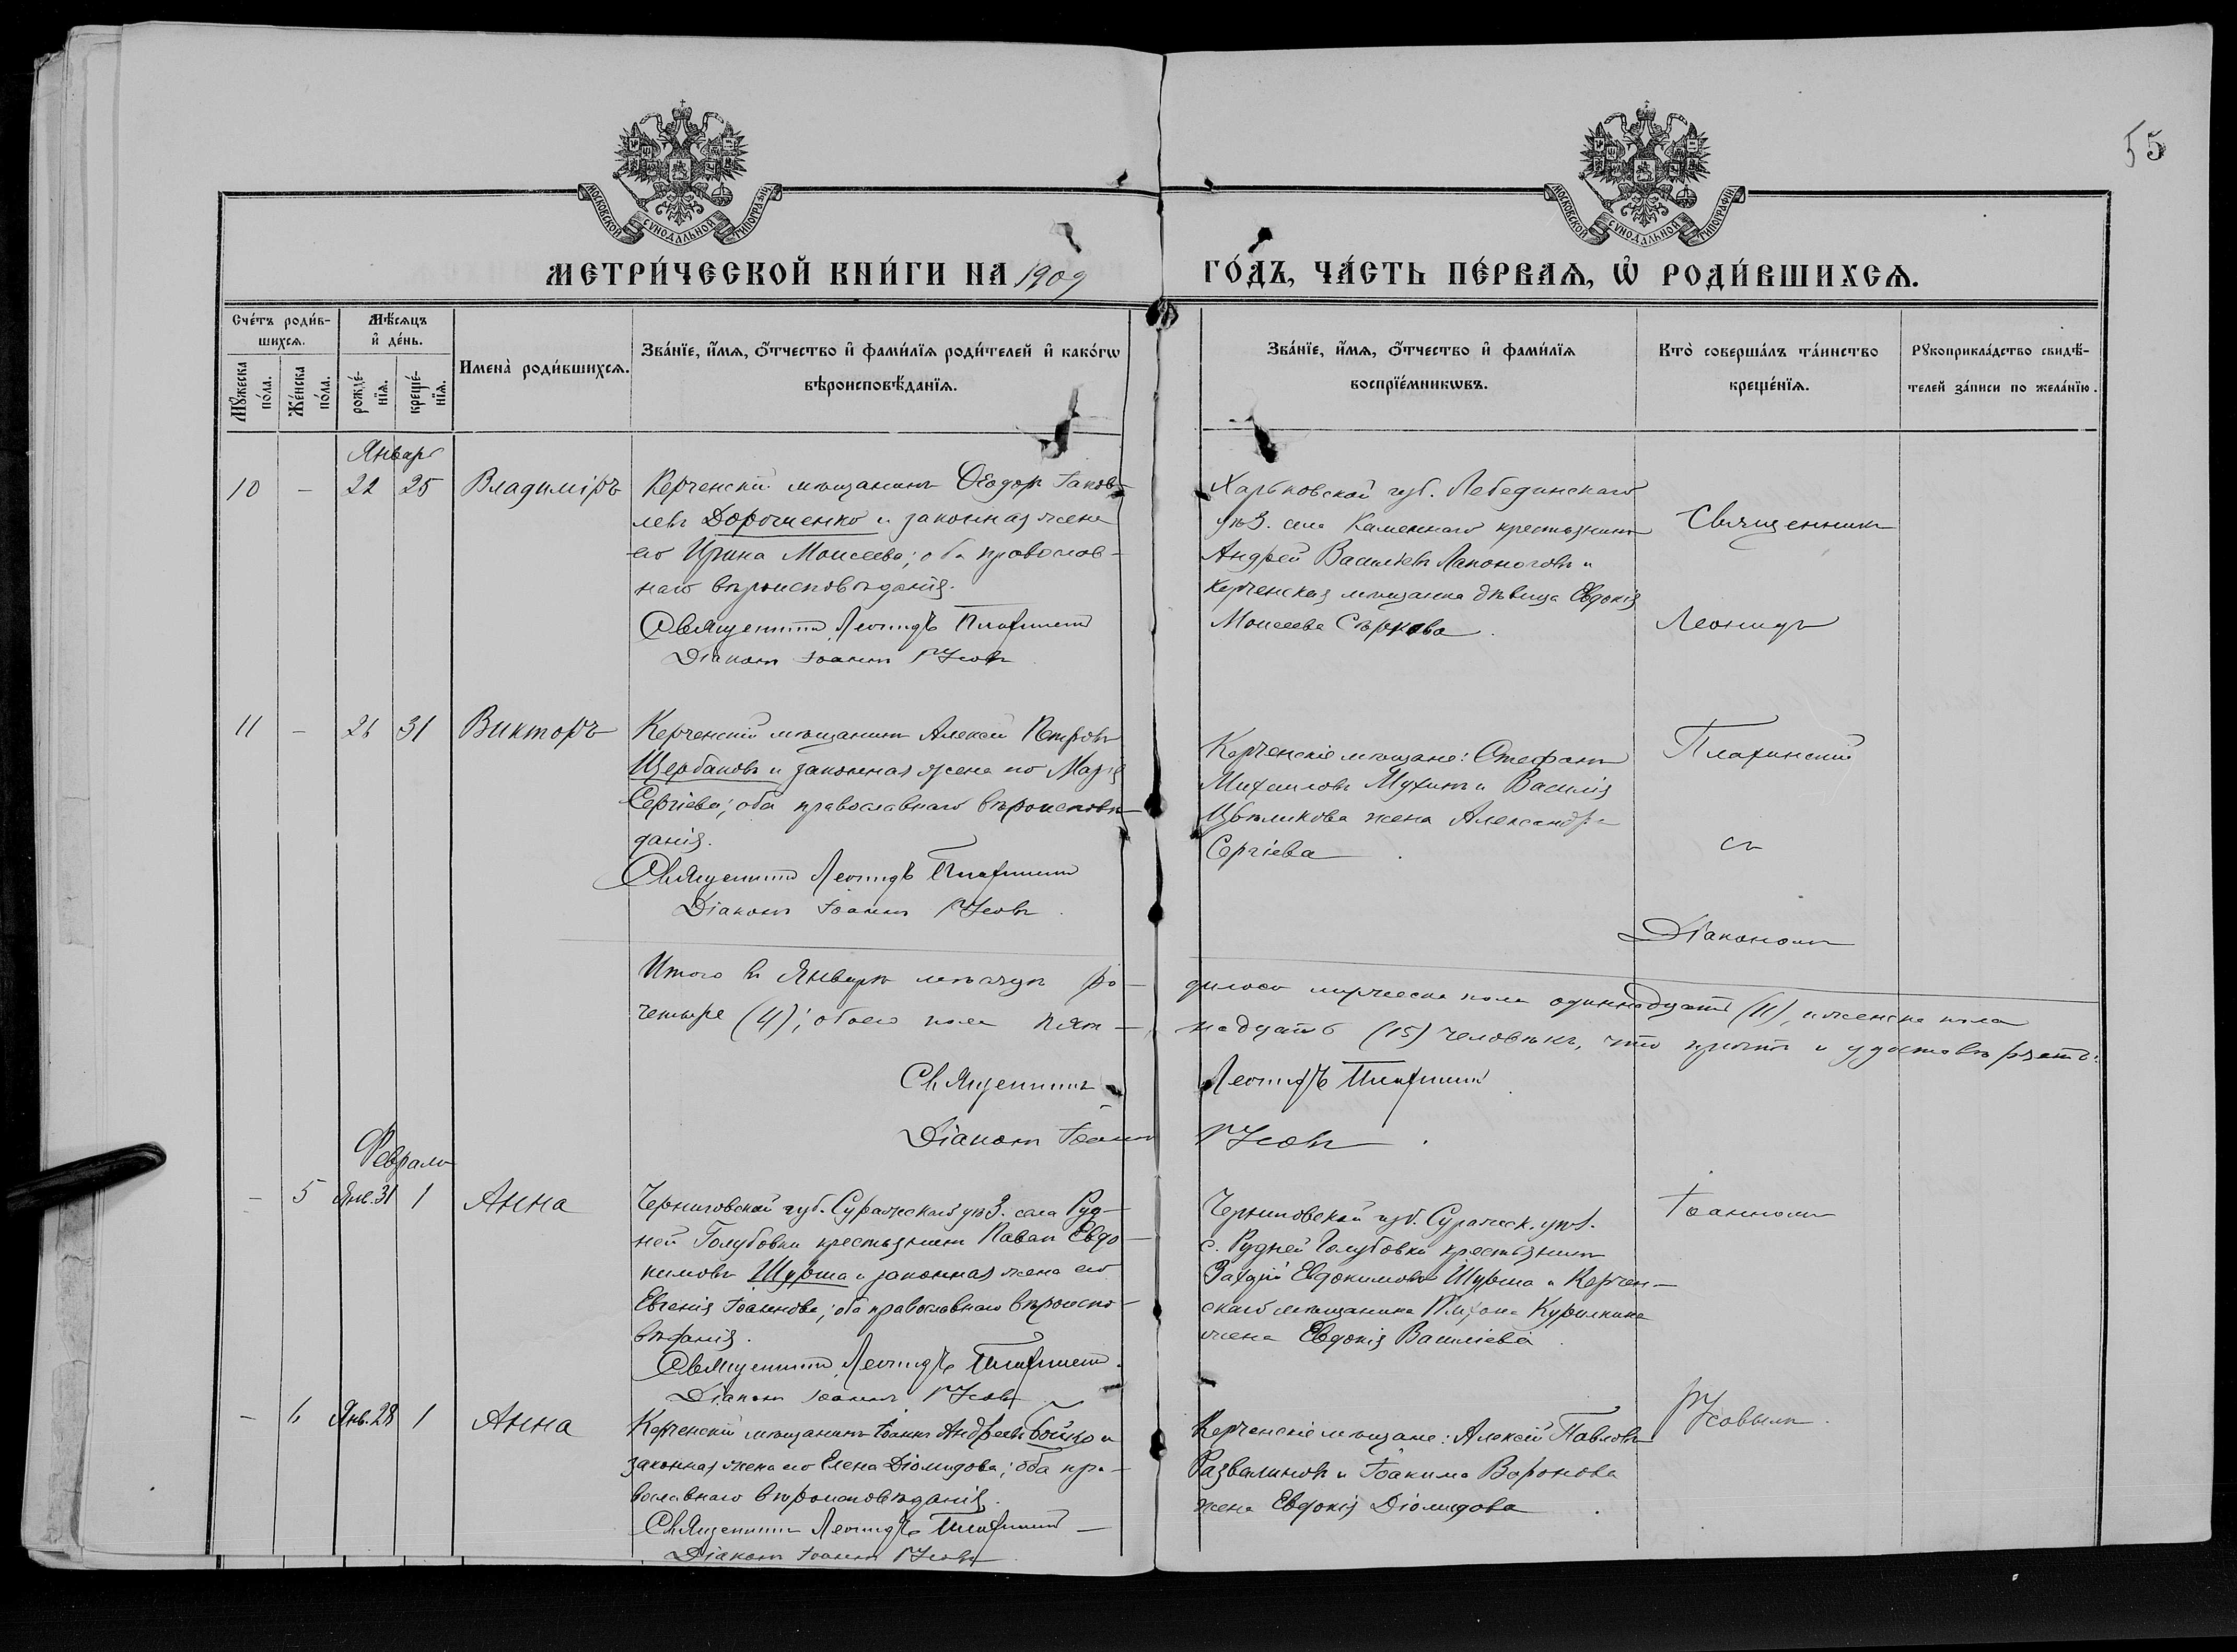 55
МОСКОВСКОЙ СУНОДАЛЬНОЙ ТИПОГРАФІИ
МОСКОВСКОЙ СУНОДАЛЬНОЙ ТИПОГРАФІИ
МЕТРИ́ЧЕСКОЙ КНИ́ГИ НА 1909 ГО́ДЪ, ЧА́СТЬ ПЕ́РВАЯ, Ѡ҆ РОДИ́ВШИХСЯ.
Сче́тъ роди́в-
шихся.
Мꙋжеска по́ла.
Же́нска по́ла.
Мѣ́сяцъ
и҆ де́нь.
рожде́-
нїя.
креще́-
нїя.
Имена̀ роди́вшихся.
Зва́нїе, и҆́мя, ѻ҆́тчество и҆ фами́лїя роди́телей и҆ како́гѡ
вѣроисповѣ́данїя.
Зва́нїе, и҆́мя, ѻ҆́тчество и҆ фами́лїя
воспрїе́мникѡвъ.
Кто̀ соверша́лъ та́инство
креще́нїя.
Рꙋкоприкла́дство свидѣ́-
телей за́писи по жела́нїю.
Январь
10 - 22 25 Владиміръ
Керченскій мѣщанинъ Ѳеодоръ Іаков-
левъ Дорошенко и законная жена
его Ирина Моисеева; оба православ-
наго вѣроисповѣданія.
Священникъ Леонидъ Плахинскій
Діаконъ Іоаннъ Усовъ
Харьковской губ. Лебединскаго
уѣз. села Каменнаго крестьянинъ
Андрей Васильевъ Лапоноговъ и
Керченская мѣщанка дѣвица Евдокія
Моисеева Сѣркова.
Священникъ
Леонидъ
11 - 26 31 Викторъ
Керченскій мѣщанинъ Алексѣй Петровъ
Щербаковъ и законная жена его Марія
Сергіева; оба православнаго вѣроисповѣ-
данія.
Священникъ Леонидъ Плахинскій
Діаконъ Іоаннъ Усовъ.
Керченскіе мѣщане: Стефанъ
Михаиловъ Мухинъ и Василія
Цвѣликова жена Александра
Сергіева.
Плахинскій
съ
Діакономъ
Итого въ Январѣ мѣсяцѣ ро- дилось мужеска пола одиннадцать (11), женска пола
четыре (4); обоего пола пят- надцать (15) человѣкъ, что и удостовѣряетъ:
Священникъ Леонидъ Плахинскій.
Діаконъ Іоаннъ Усовъ.
Февраль
- 5 Янв. 31 1 Анна
Черниговской губ. Суражскаго уѣз. села Руд-
ней Голубовки крестьянинъ Павелъ Евдо-
кимовъ Шурша и законная жена его
Евгенія Іоаннова; оба православнаго вѣроиспо-
вѣданія.
Священникъ Леонидъ Плахинскій.
Діаконъ Іоаннъ Усовъ
Черниговской губ. Суражск. уѣз.
с. Рудней Голубовки крестьянинъ
Евдокимовъ Шурша и Керчен-
скаго мѣщанина Курилкина
жена Евдокія Василіева.
Іоанномъ
- 6 Янв. 28 1 Анна
Керченскій мѣщанинъ Іоаннъ Андреевъ Бойко и
законная жена его Елена Діомидова; оба пра-
вославнаго вѣроисповѣданія.
Священникъ Леонидъ Плахинскій
Діаконъ Іоаннъ Усовъ
Керченскіе мѣщане: Алексѣй Павловъ
Развалиновъ и Іоакима Воронова
жена Евдокія Діомидова.
Усовымъ.